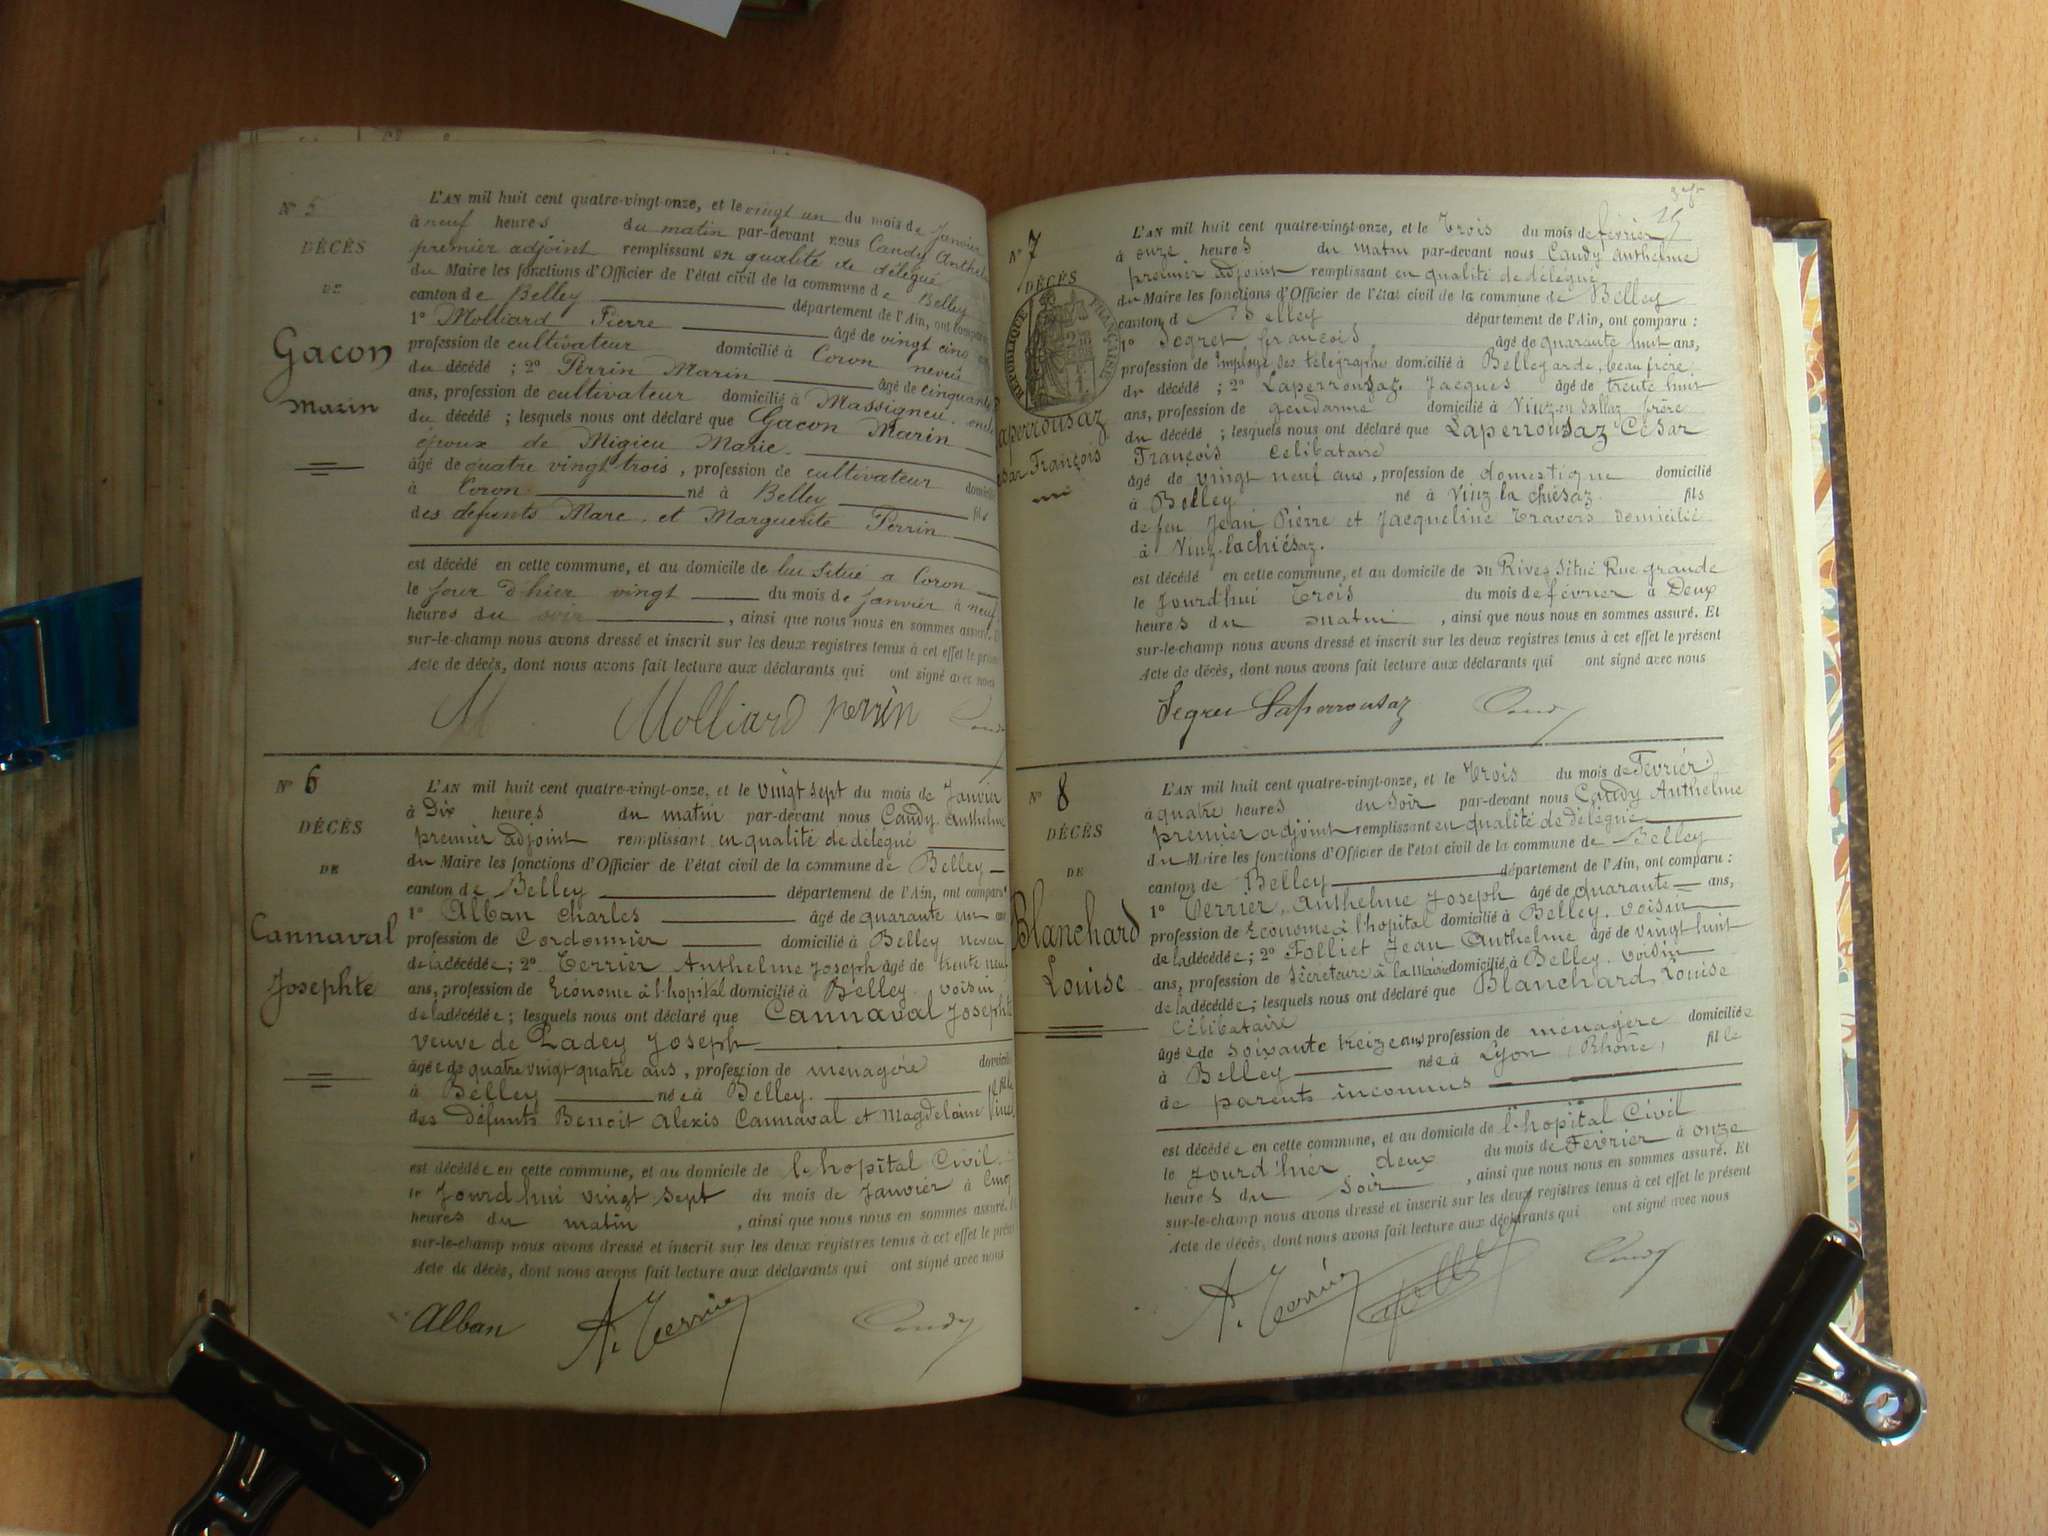 N° 5
DÉCÈS
DE
Gacon
Marin
L'AN mil huit cent quatre-vingt-onze, et le vingt un du mois de Janvier
à neuf heures du matin par-devant nous Candy Anthel
premier adjoint remplissant en qualité de délégué
du Maire les fonctions d'Officier de l'état civil de la commune de Belley
canton de Belley département de l'Ain, ont comparu
1° Molliard Pierre âgé de vingt cinq
profession de cultivateur domicilié à Coron neveu
du décédé ; 2° Perrin Marin âgé de cinquante
ans, profession de cultivateur domicilié à Massigneu. oncle
du décédé ; lesquels nous ont déclaré que Gacon Marin
époux de Migieu Marie.
âgé de quatre vingt trois, profession de cultivateur domicilié
à Coron né à Belley fils
des défunts Marc, et Marguerite Perrin
est décédé en cette commune, et au domicile de lui situé a Coron
le jour d'hier vingt du mois de Janvier à neuf
heures du soir, ainsi que nous nous en sommes assuré.
sur-le-champ nous avons dressé et inscrit sur les deux registres tenus à cet effet le présent
Acte de décès, dont nous avons fait lecture aux déclarants qui ont signé avec nous
M Molliard perrin Candy
N° 6
DÉCÈS
DE
Cannaval
Josephte
L'AN mil huit cent quatre-vingt-onze, et le vingt sept du mois de Janvier
à Dix heures du matin par-devant nous Candy Anthelme
premier adjoint remplissant en qualité de délégué
du Maire les fonctions d'Officier de l'état civil de la commune de Belley
canton de Belley département de l'Ain, ont comparu
1° Alban charles âgé de quarante un ans
profession de Cordonnier domicilié à Belley neveu
de la décédée ; 2° Terrier Anthelme Joseph âgé de trente neuf
ans, profession de Econome à l'hopital domicilié à Belley voisin
de la décédée ; lesquels nous ont déclaré que Cannaval Josephte
veuve de Ladey Joseph
âgée de quatre vingt quatre ans, profession de menagére domiciliée
à Belley née à Belley. fille
des défunts Benoit Alexis Cannaval et Magdelaine
est décédée en cette commune, et au domicile de l'hopital Civil.
le Jourd'hui vingt sept du mois de Janvier à Cinq
heures du matin, ainsi que nous nous en sommes assuré.
sur-le-champ nous avons dressé et inscrit sur les deux registres tenus à cet effet le présent
Acte de décès, dont nous avons fait lecture aux déclarants qui ont signé avec nous
Alban A. Terrier Candy
N° 7
DÉCÈS
RÉPUBLIQUE FRANÇAISE
Laperrousaz
César François
L'AN mil huit cent quatre-vingt-onze, et le Trois du mois de février
à onze heures du matin par-devant nous Candy Anthelme
premier adjoint remplissant en qualité de délégué
du Maire les fonctions d'Officier de l'état civil de la commune de Belley
canton de Belley département de l'Ain, ont comparu :
1° Segret françois âgé de quarante huit ans,
profession de Employé des télégraphe domicilié à Bellegarde, beau frère
du décédé ; 2° Laperrousaz Jacques âgé de trente huit
ans, profession de gendarme domicilié à Viuz en Sallaz frère
du décédé ; lesquels nous ont déclaré que Laperrousaz César
François Celibataire
âgé de vingt neuf ans, profession de domestique domicilié
à Belley né à Viuz la chiésaz fils
de feu Jean Pierre et Jacqueline Travers domicilié
à Viuz-lachiésaz.
est décédé en cette commune, et au domicile de du Rives situé Rue grande
le Jourd'hui Trois du mois de février à Deux
heures du matin, ainsi que nous nous en sommes assuré. Et
sur-le-champ nous avons dressé et inscrit sur les deux registres tenus à cet effet le présent
Acte de décès, dont nous avons fait lecture aux déclarants qui ont signé avec nous
Segret Laperrousaz Candy
N° 8
DÉCÈS
DE
Blanchard
Louise
L'AN mil huit cent quatre-vingt-onze, et le Trois du mois de Février
à quatre heures du soir par-devant nous Candy Anthelme
premier adjoint remplissant en qualité de délégué
du Maire les fonctions d'Officier de l'état civil de la commune de Belley
canton de Belley département de l'Ain, ont comparu :
1° Terrier, Anthelme Joseph âgé de quarante ans,
profession de Econome à l'hopital domicilié à Belley. voisin
de la décédée ; 2° Folliet Jean Anthelme âgé de vingt huit
ans, profession de Sécretaire à la Mairie domicilié à Belley. voisin
de la décédée ; lesquels nous ont déclaré que Blanchard Louise
Célibataire
âgée de soixante treize ans profession de ménagère domiciliée
à Belley née à Lyon (Rhône) fille
de parents inconnus
est décédée en cette commune, et au domicile de l'hopital Civil
le Jourd'hier deux du mois de Février à onze
heures du soir, ainsi que nous nous en sommes assuré. Et
sur-le-champ nous avons dressé et inscrit sur les deux registres tenus à cet effet le présent
Acte de décès, dont nous avons fait lecture aux déclarants qui ont signé avec nous
A. Terrier Candy